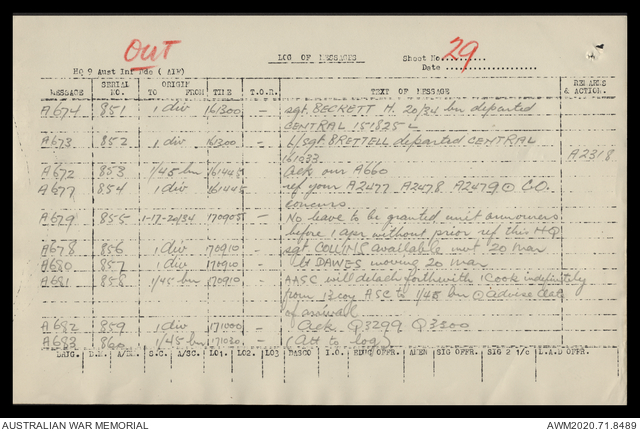 OUT
LOG OF MESSAGES
Sheet No. 29
HQ 9 Aust Inf Bde (AIF)
Date
MESSAGE SERIAL NO. ORIGIN TO FROM TIME T.O.R. TEXT OF MESSAGE REMARKS & ACTION.
A674 851 1 div 161300 — sgt. BECKETT M. 20/34 bn departed
CENTRAL 151825 L
A673 852 1 div 161300 — L/sgt BRETTELL departed CENTRAL
161033 A2318
A672 853 1/45 bn 161445 Ack our A660
A677 854 1 div 161445 ref your A2477 A2478 A2479 ⊙ CO.
concurs.
A679 855 1-17-20/34 170905 — No leave to be granted unit armourers
before 1 Apr without prior ref this HQ
A678 856 1 div 170910 — sgt COLLINS available mvt 20 Mar
A680 857 1 div 170910 — Lt DAWES moving 20 Mar
A681 858 1/45 bn 170910 AASC will detach forthwith 1 Cook indefinitely
from 13 coy ASC to 1/45 bn ⊙ Advise date
of arrival
A682 859 1 div 171000 — Ack. Q3299 Q3300
A683 860 1/45 bn 171030 (Att to log)
BRIG. B.M. A/BM. S.C. A/SC. LO1. LO2. LO3 DASCO I.O. EDUC OFFR. AMEN SIG OFFR. SIG 2 i/c L.A.D OFFR.
AUSTRALIAN WAR MEMORIAL
AWM2020.71.8489